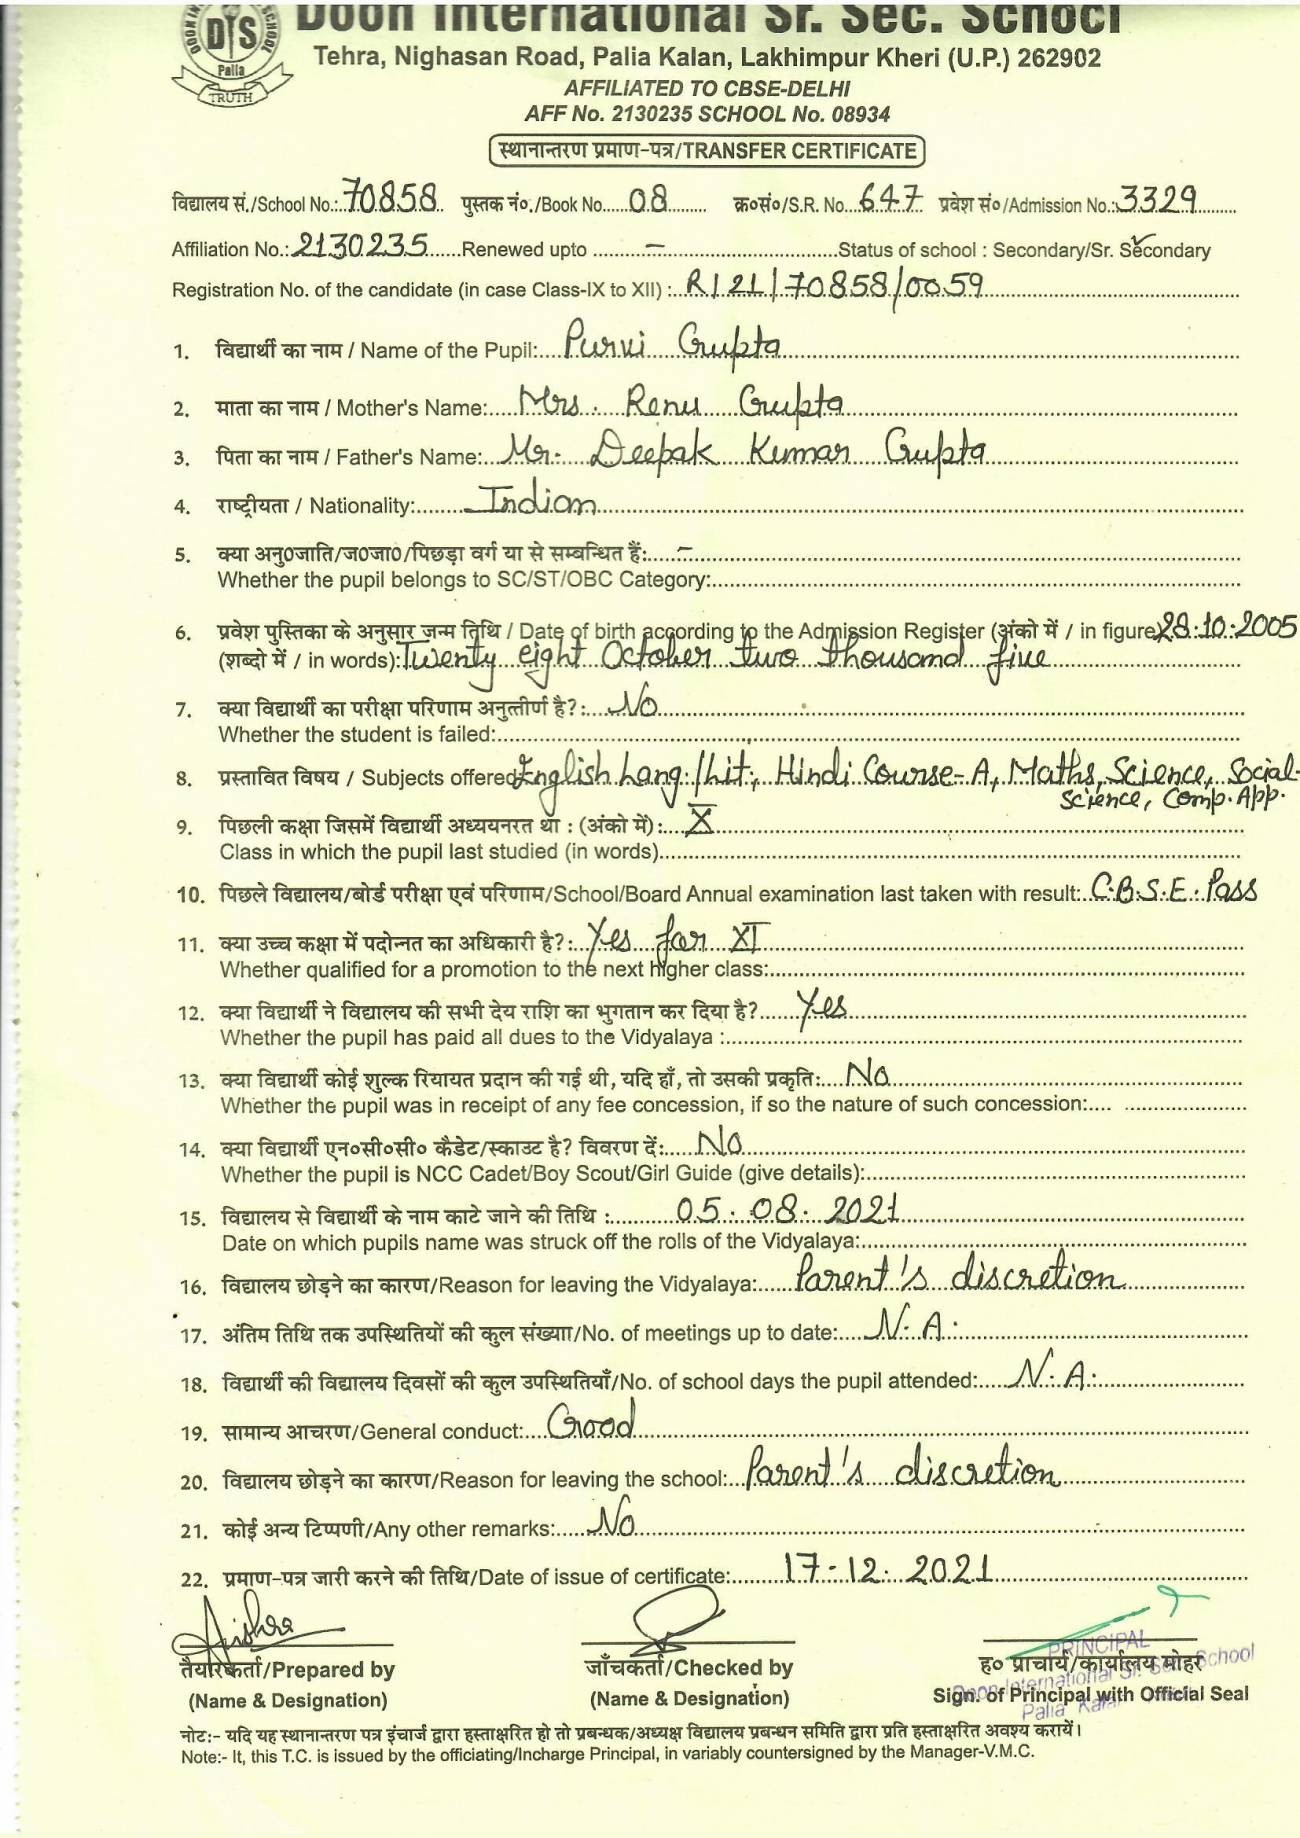 Doon International Sr. Sec. School
DIS
Palia
TRUTH
Tehra, Nighasan Road, Palia Kalan, Lakhimpur Kheri (U.P.) 262902
AFFILIATED TO CBSE-DELHI
AFF No. 2130235 SCHOOL No. 08934
स्थानान्तरण प्रमाण-पत्र/TRANSFER CERTIFICATE
विद्यालय सं./School No.: 70858 पुस्तक नं०./Book No. 08 क्र०सं०/S.R. No. 647 प्रवेश सं०/Admission No.: 3329
Affiliation No.: 2130235 Renewed upto – Status of school : Secondary/Sr. Secondary
Registration No. of the candidate (in case Class-IX to XII) : R/21/70858/0059
1. विद्यार्थी का नाम / Name of the Pupil: Purvi Gupta
2. माता का नाम / Mother's Name: Mrs. Renu Gupta
3. पिता का नाम / Father's Name: Mr. Deepak Kumar Gupta
4. राष्ट्रीयता / Nationality: Indian
5. क्या अनु0जाति/ज0जा0/पिछड़ा वर्ग या से सम्बन्धित हैं: –
Whether the pupil belongs to SC/ST/OBC Category:
6. प्रवेश पुस्तिका के अनुसार जन्म तिथि / Date of birth according to the Admission Register (अंको में / in figure) 28.10.2005
(शब्दो में / in words): Twenty eight October two thousand five
7. क्या विद्यार्थी का परीक्षा परिणाम अनुत्तीर्ण है?: No
Whether the student is failed:
8. प्रस्तावित विषय / Subjects offered English Lang./Lit., Hindi Course-A, Maths, Science, Social-
Science, Comp. App.
9. पिछली कक्षा जिसमें विद्यार्थी अध्ययनरत था : (अंको में): X
Class in which the pupil last studied (in words)
10. पिछले विद्यालय/बोर्ड परीक्षा एवं परिणाम/School/Board Annual examination last taken with result: C.B.S.E. Pass
11. क्या उच्च कक्षा में पदोन्नत का अधिकारी है?: Yes for XI
Whether qualified for a promotion to the next higher class:
12. क्या विद्यार्थी ने विद्यालय की सभी देय राशि का भुगतान कर दिया है? Yes
Whether the pupil has paid all dues to the Vidyalaya :
13. क्या विद्यार्थी कोई शुल्क रियायत प्रदान की गई थी, यदि हाँ, तो उसकी प्रकृति: No
Whether the pupil was in receipt of any fee concession, if so the nature of such concession:
14. क्या विद्यार्थी एन०सी०सी० कैडेट/स्काउट है? विवरण दें: No
Whether the pupil is NCC Cadet/Boy Scout/Girl Guide (give details):
15. विद्यालय से विद्यार्थी के नाम काटे जाने की तिथि : 05.08.2021
Date on which pupils name was struck off the rolls of the Vidyalaya:
16. विद्यालय छोड़ने का कारण/Reason for leaving the Vidyalaya: Parent's discretion
17. अंतिम तिथि तक उपस्थितियों की कुल संख्या/No. of meetings up to date: N.A.
18. विद्यार्थी की विद्यालय दिवसों की कुल उपस्थितियाँ/No. of school days the pupil attended: N.A.
19. सामान्य आचरण/General conduct: Good
20. विद्यालय छोड़ने का कारण/Reason for leaving the school: Parent's discretion
21. कोई अन्य टिप्पणी/Any other remarks: No
22. प्रमाण-पत्र जारी करने की तिथि/Date of issue of certificate: 17-12-2021
PRINCIPAL
Doon International Sr. Sec. School
Palia Kalan
तैयारकर्ता/Prepared by जाँचकर्ता/Checked by ह० प्राचार्य/कार्यालय मोहर
(Name & Designation) (Name & Designation) Sign. of Principal with Official Seal
नोट:- यदि यह स्थानान्तरण पत्र इंचार्ज द्वारा हस्ताक्षरित हो तो प्रबन्धक/अध्यक्ष विद्यालय प्रबन्धन समिति द्वारा प्रति हस्ताक्षरित अवश्य करायें।
Note:- It, this T.C. is issued by the officiating/Incharge Principal, in variably countersigned by the Manager-V.M.C.